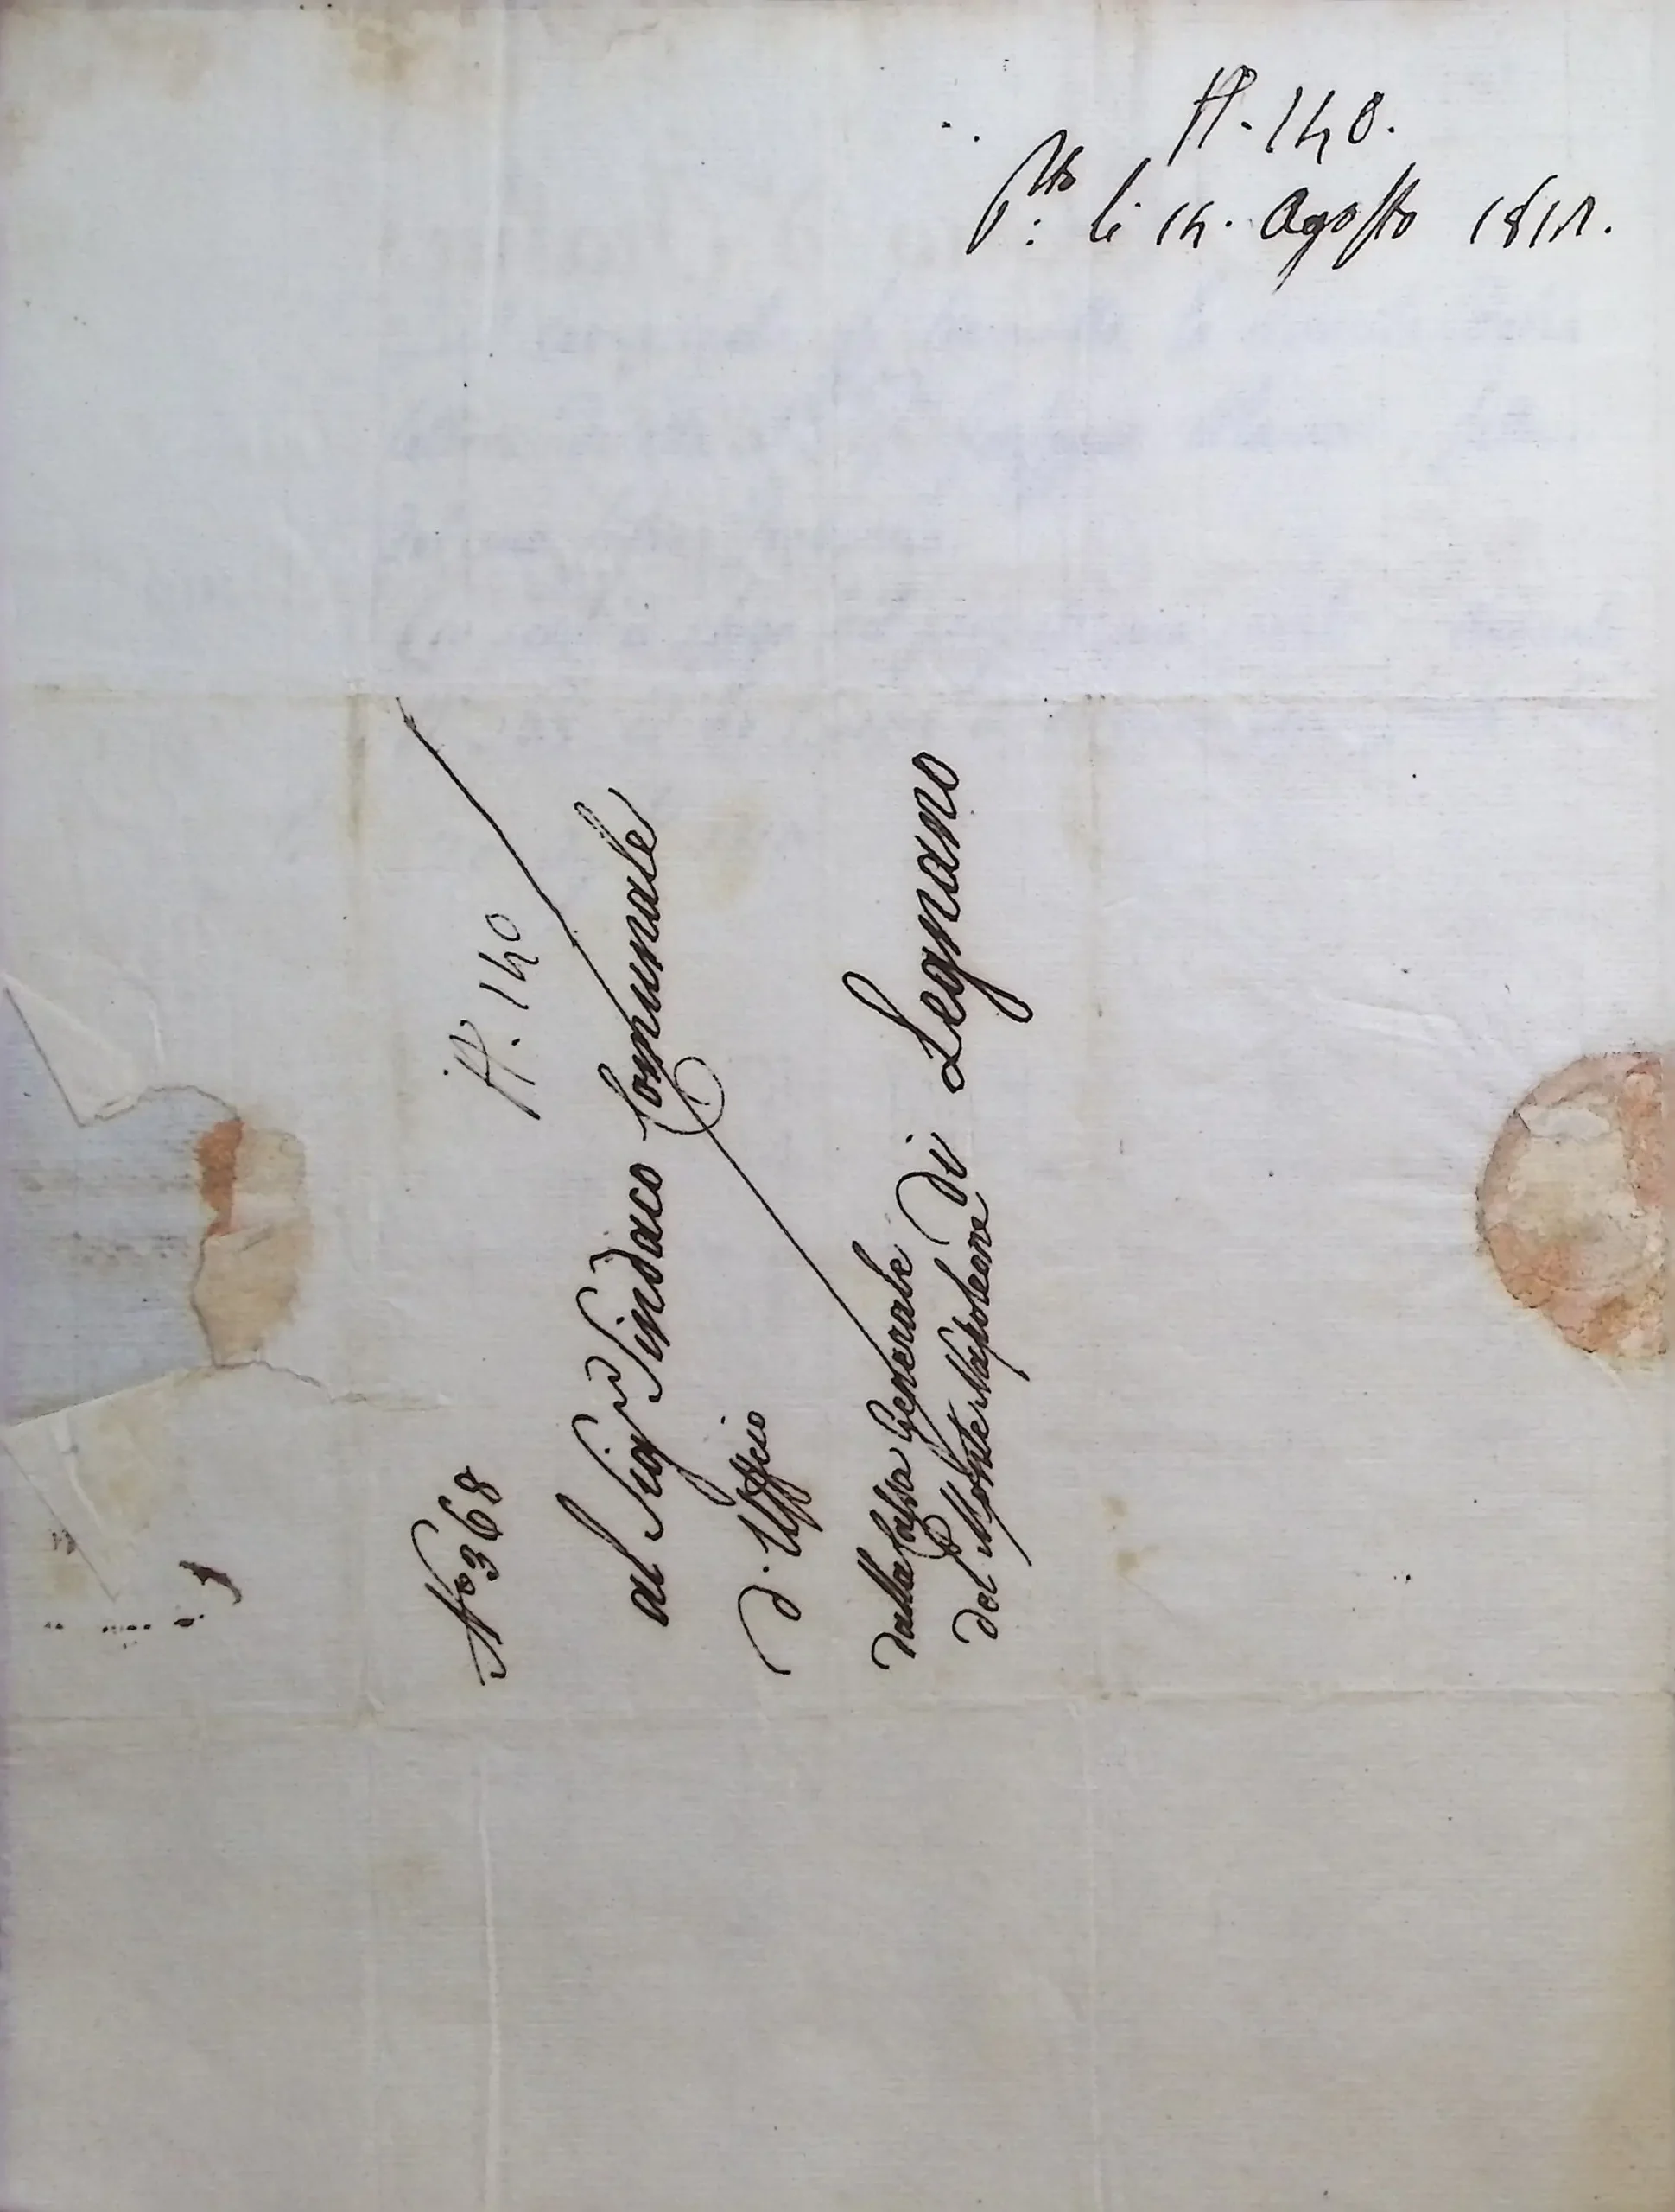 N. 140.
P.tto: li 14. Agosto 1811.
N. 140
N.o 368
al Sig.r Sindaco Comunale
d. Ufficio
dalla Cassa Generale
del Monte Napoleone
di Legnano